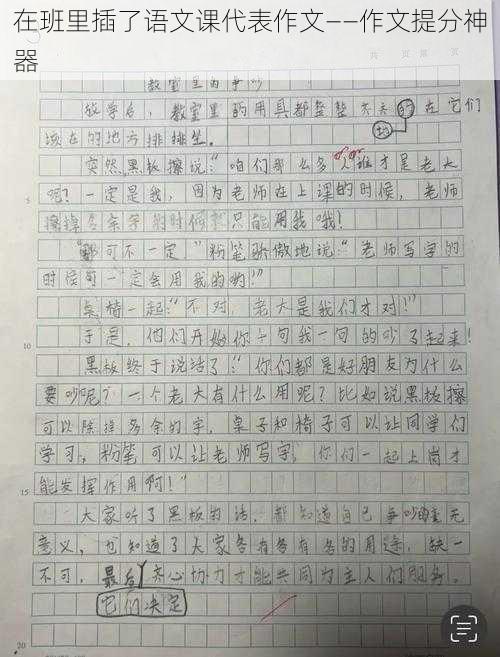 在班里插了语文课代表作文——作文提分神
器
共 页 第 页
教室里的争吵
放学后，教室里的用具都整整齐齐的在它们
该在的地方排排坐。
突然，黑板擦说：“咱们那么多人谁才是老大
呢？一定是我，因为老师在上课的时候，老师
擦掉多余字的时候只能用我哦！
“那可不一定”粉笔骄傲地说：“老师写字的
时候可一定会用我的哟！”
桌椅一起：“不对，老大是我们才对！”
于是，他们开始你一句我一句的吵了起来！
黑板终于说话了：“你们都是好朋友为什么
要吵呢？一个老大有什么用呢？比如说黑板擦
可以除掉多余的字，桌子和椅子可以让同学们
学习，粉笔可以让老师写字，你们一起上岗才
能发挥作用啊！”
大家听了黑板的话，都知道自己争吵的毫无
意义，也知道了大家各有各有名的用途，缺一
不可，最后齐心协力才能共同为主人们服务。
它们决定
5
10
15
20